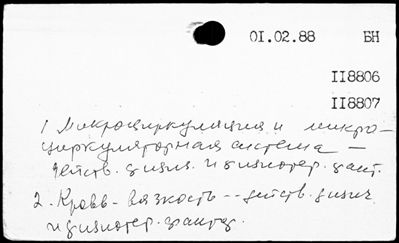 01.02.88 БН
II8806
II8807
1 Микроциркуляция и микро-
циркуляторная система —
действ. физич. и физиотер. факт.
2. Кровь - вязкость -- действ. физич
и физиотер. фактор.